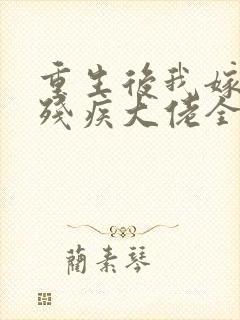 重生後我嫁
殘疾大佬全
蘭素琴